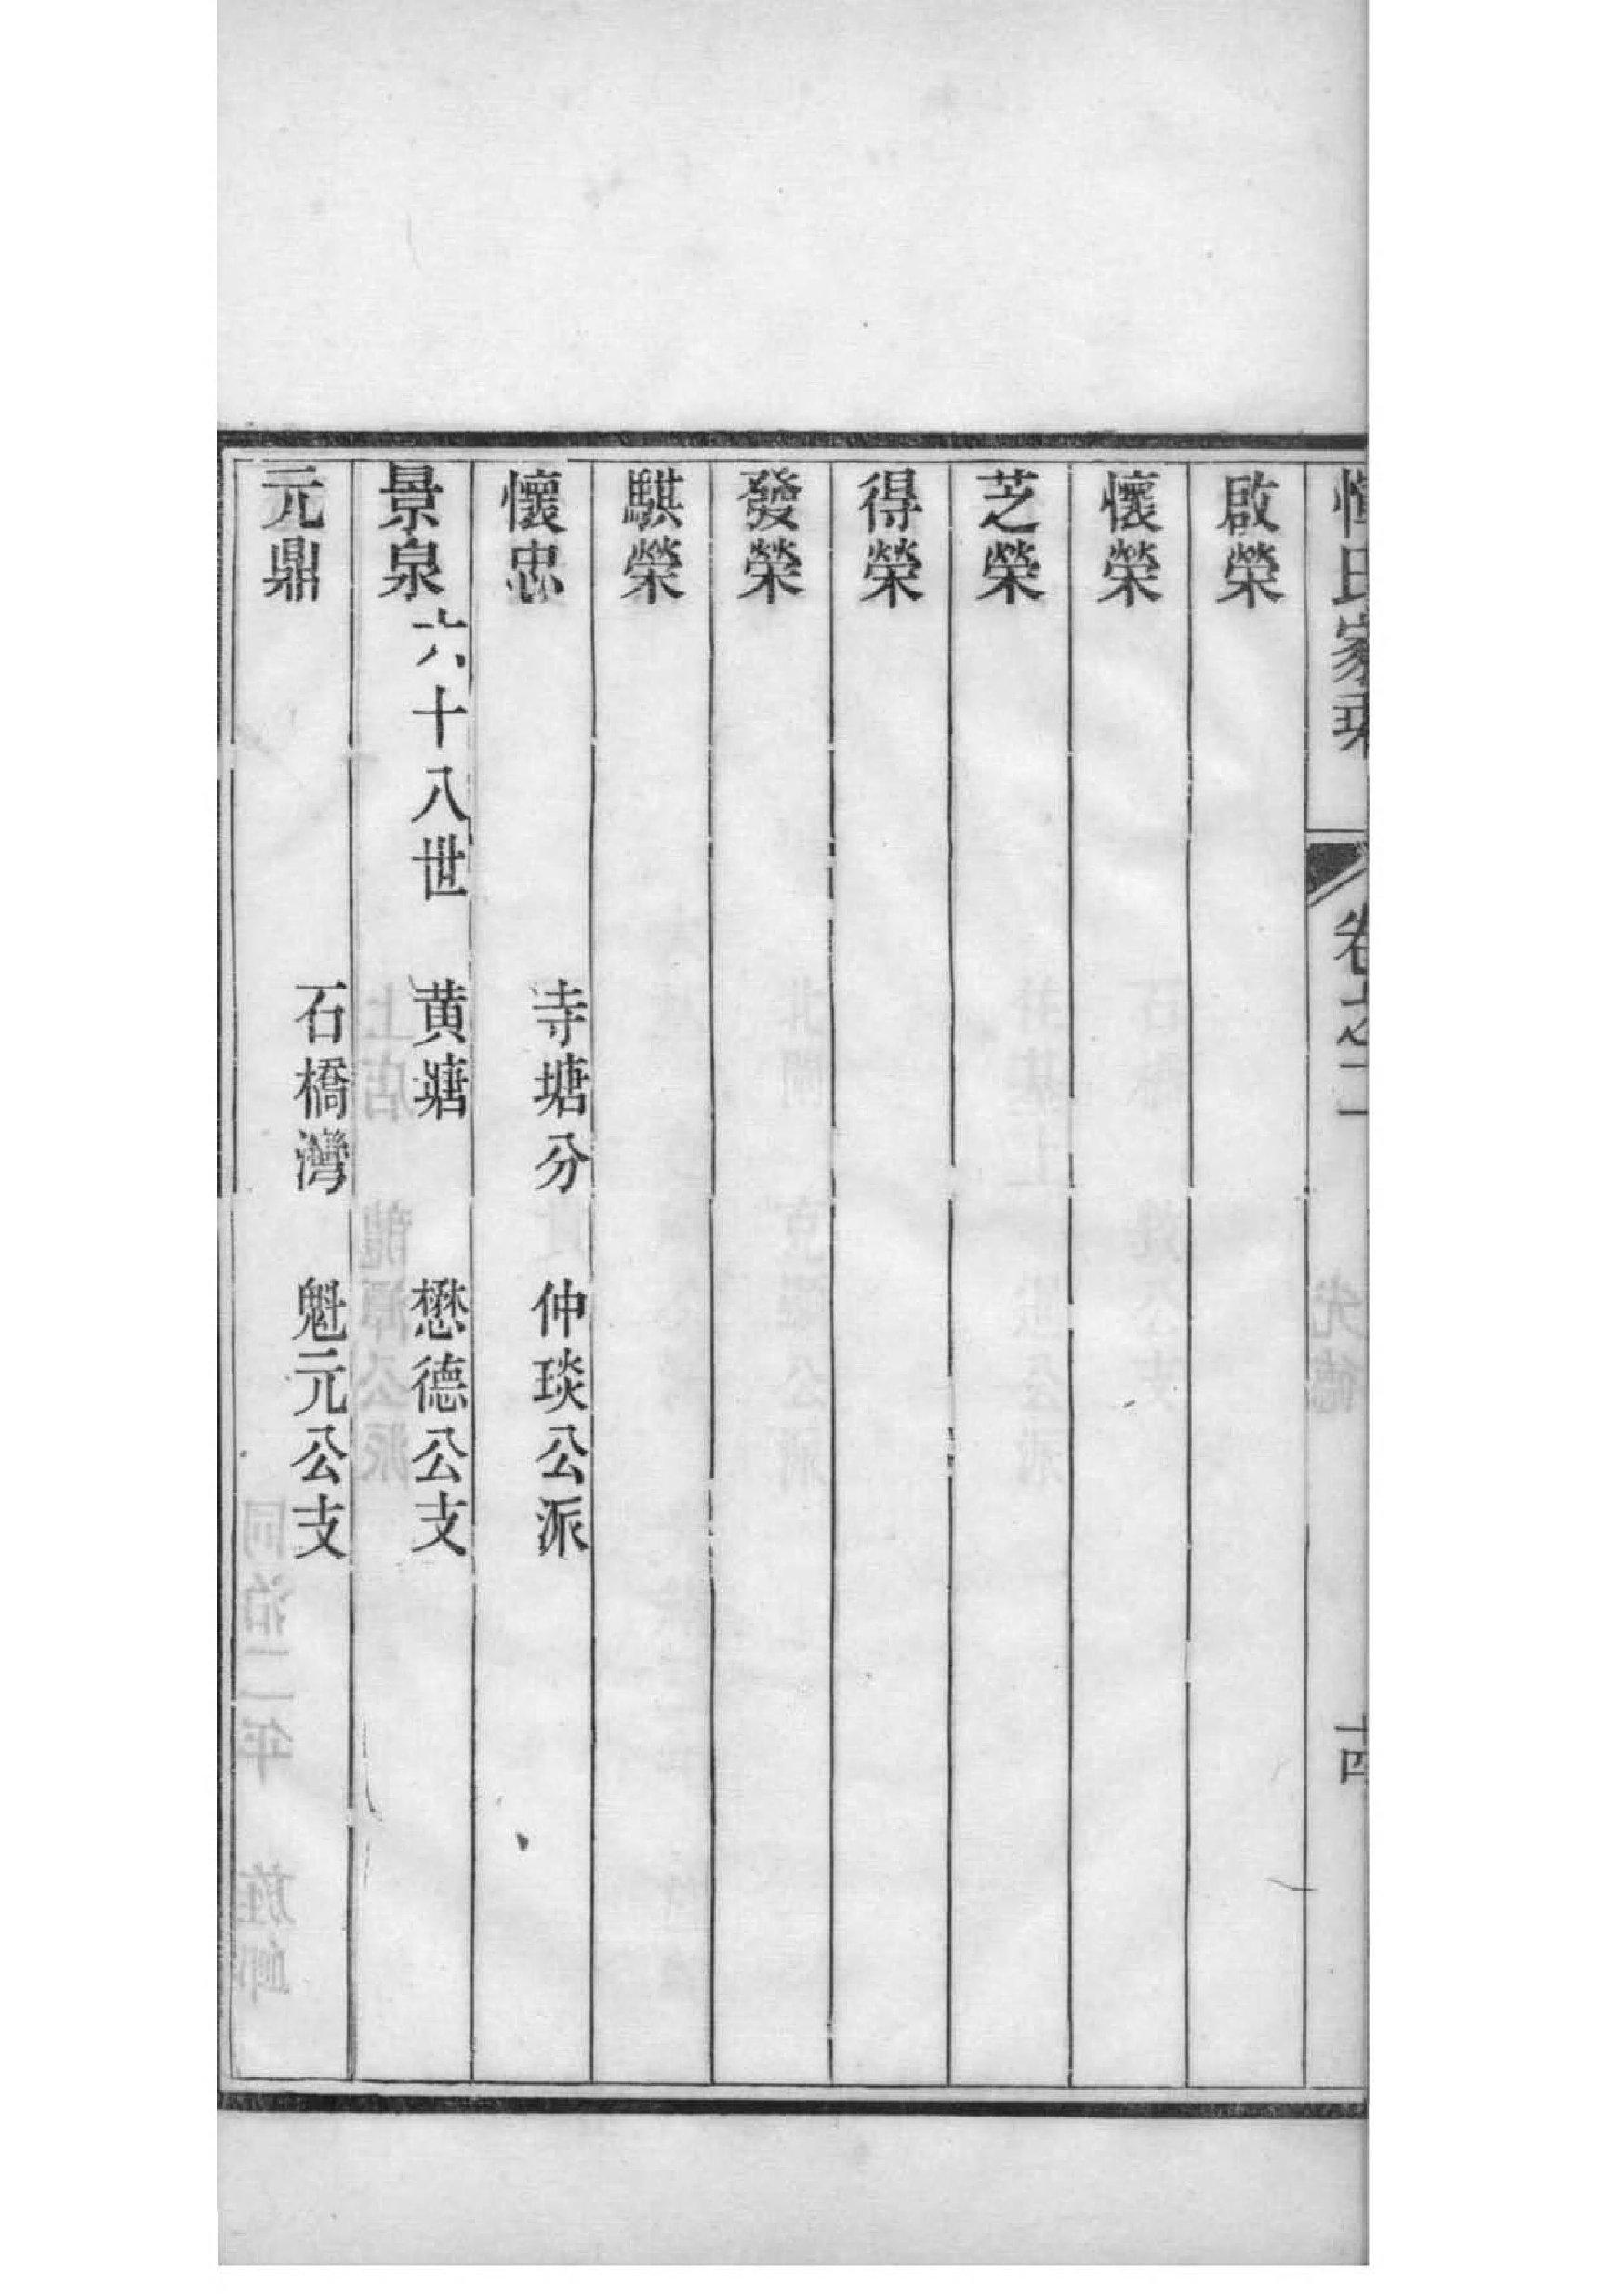 惲氏家乘 卷之二 十四
啟榮
懷榮
芝榮
得榮
發榮
騏榮
懷忠 寺塘分 仲琰公派
景泉 六十八世 黃塘 懋德公支
元鼎 石橋灣 魁元公支